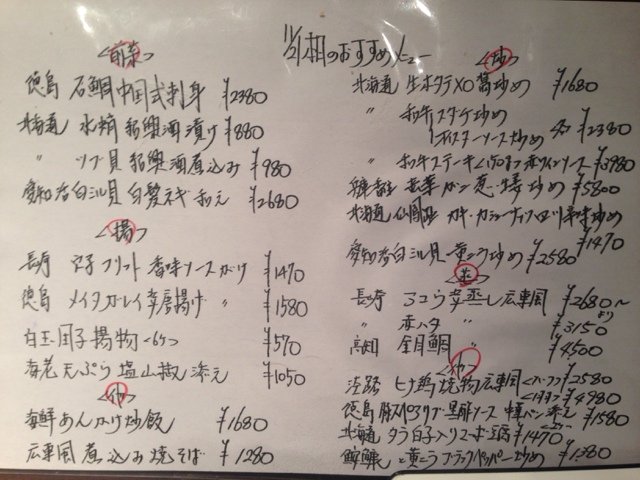 11/21(木)のおすすめメニュー
<前菜>
徳島 石鯛中国式刺身 ¥2380
北海道 水蛸 紹興酒漬け ¥880
〃 ツブ貝紹興酒煮込み ¥980
愛知 活白ミル貝 白髪ネギ和え ¥2680
<揚>
長崎 穴子フリット 香味ソースがけ ¥1470
徳島 メイタガレイ 唐揚げ 〃 ¥1580
白玉団子揚物 <6ケ> ¥570
海老天ぷら 塩山椒添え ¥1050
<他>
海鮮あんかけ炒飯 ¥1680
広東風 煮込み焼そば ¥1280
<炒>
北海道 生ホタテXO醤炒め ¥1680
〃 和牛 炒め
オイスターソース炒め ¥2380
〃 和牛ステーキ<150g> 赤ワインソース ¥3980
葱・ 炒め ¥5800
北海道 仙鳳趾 カキ・カシューナッツ 四川辛味炒め
¥1470
愛知 活白ミル貝・黄ニラ炒め ¥2580
<蒸>
長崎 マコガレイ 蒸し 広東風 ¥2680〜
〃 赤ハタ 〃 ¥3150
高知 金目鯛 〃 ¥4500
淡路 ヒナ鶏焼物広東風 <ハーフ> ¥2580
¥4980
徳島 豚スペアリブ黒酢ソース 中華パン添え ¥1580
北海道 タラ白子入りマーボ豆腐 ¥1470
鮟鱇と黄ニラブラックペッパー炒め ¥1380